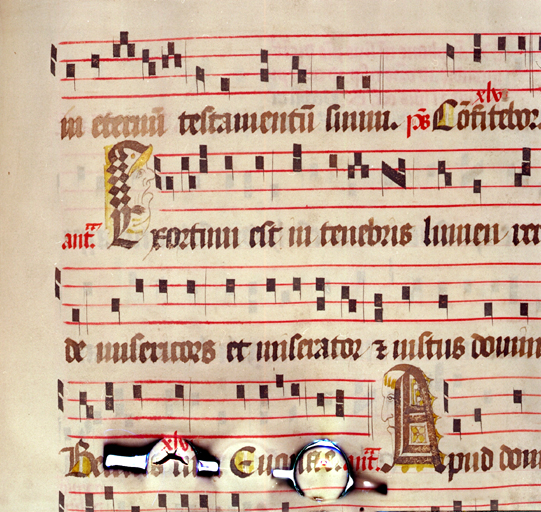 in eternū testamentū suum. ps Cōfitebor.
xlv
ant. Exortum est in tenebris lumen rec
de misericors et miserator ⁊ iustus domin
xlv
ant. Apud dom